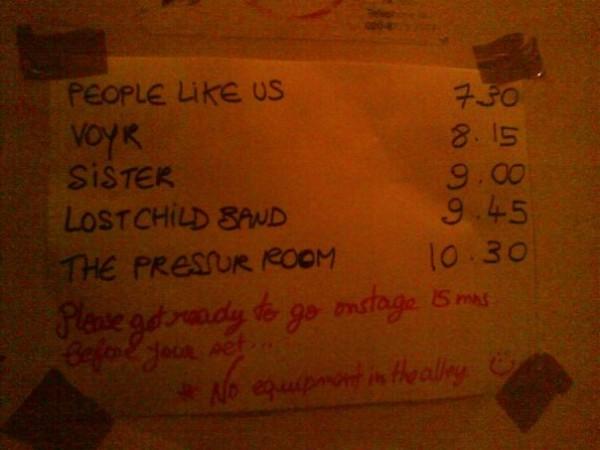 PEOPLE LIKE US 7.30
VOYR 8.15
SISTER 9.00
LOST CHILD BAND 9.45
THE PRESSUR ROOM 10.30
Please get ready to go onstage 15 mns
before your set...
* No equipment in the alley